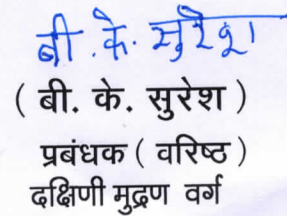 बी. के. सुरेश
( बी. के. सुरेश )
प्रबंधक ( वरिष्ठ )
दक्षिणी मुद्रण वर्ग